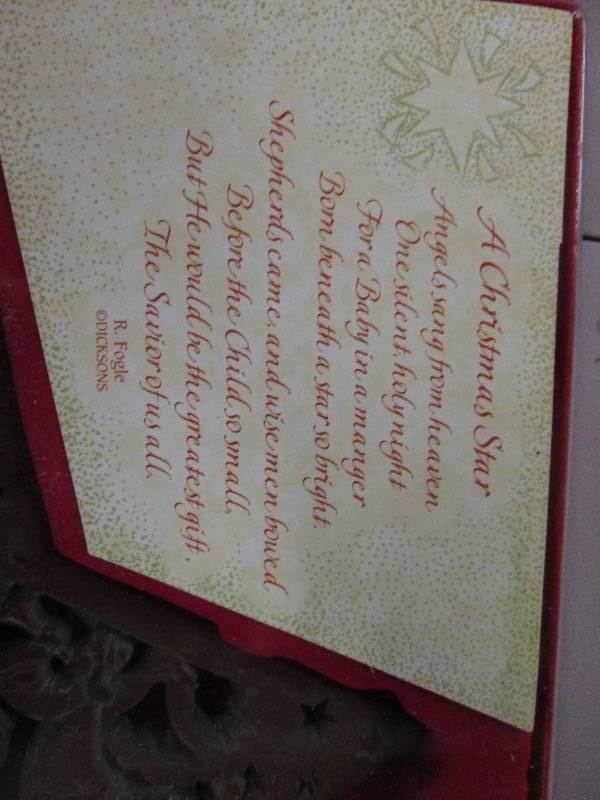 A Christmas Star
Angels sang from heaven
One silent, holy night
For a Baby in a manger
Born beneath a star so bright.
Shepherds came, and wise men bowed
Before the Child so small,
But He would be the greatest gift,
The Savior of us all.
R. Fogle
©DICKSONS